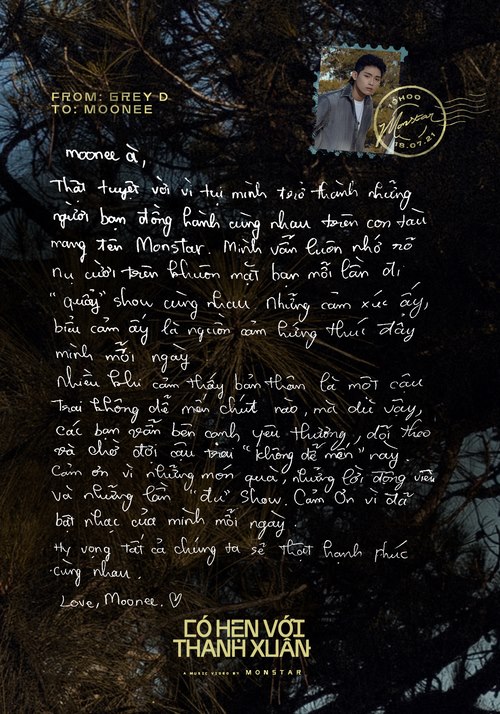 FROM: GREY D
TO: MOONEE
19H00
Monstar
18.07.21
moonee à,
Thật tuyệt vời vì tụi mình trở thành những
người bạn đồng hành cùng nhau trên con tàu
mang tên Monstar. Mình vẫn luôn nhớ rõ
nụ cười trên khuôn mặt bạn mỗi lần đi
"quẩy" show cùng nhau. Những cảm xúc ấy,
biểu cảm ấy là nguồn cảm hứng thúc đẩy
mình mỗi ngày
Nhiều khi cảm thấy bản thân là một cậu
trai không dễ mến chút nào, mà dù vậy,
các bạn vẫn bên cạnh yêu thương, dõi theo
và chờ đợi cậu trai "không dễ mến" này.
Cảm ơn vì những món quà, những lời động viên
và những lần "đu" show. Cảm ơn vì đã
bật nhạc của mình mỗi ngày.
Hy vọng tất cả chúng ta sẽ thật hạnh phúc
cùng nhau.
Love, Moonee. ♡
CÓ HẸN VỚI
THANH XUÂN
A MUSIC VIDEO BY MONSTAR